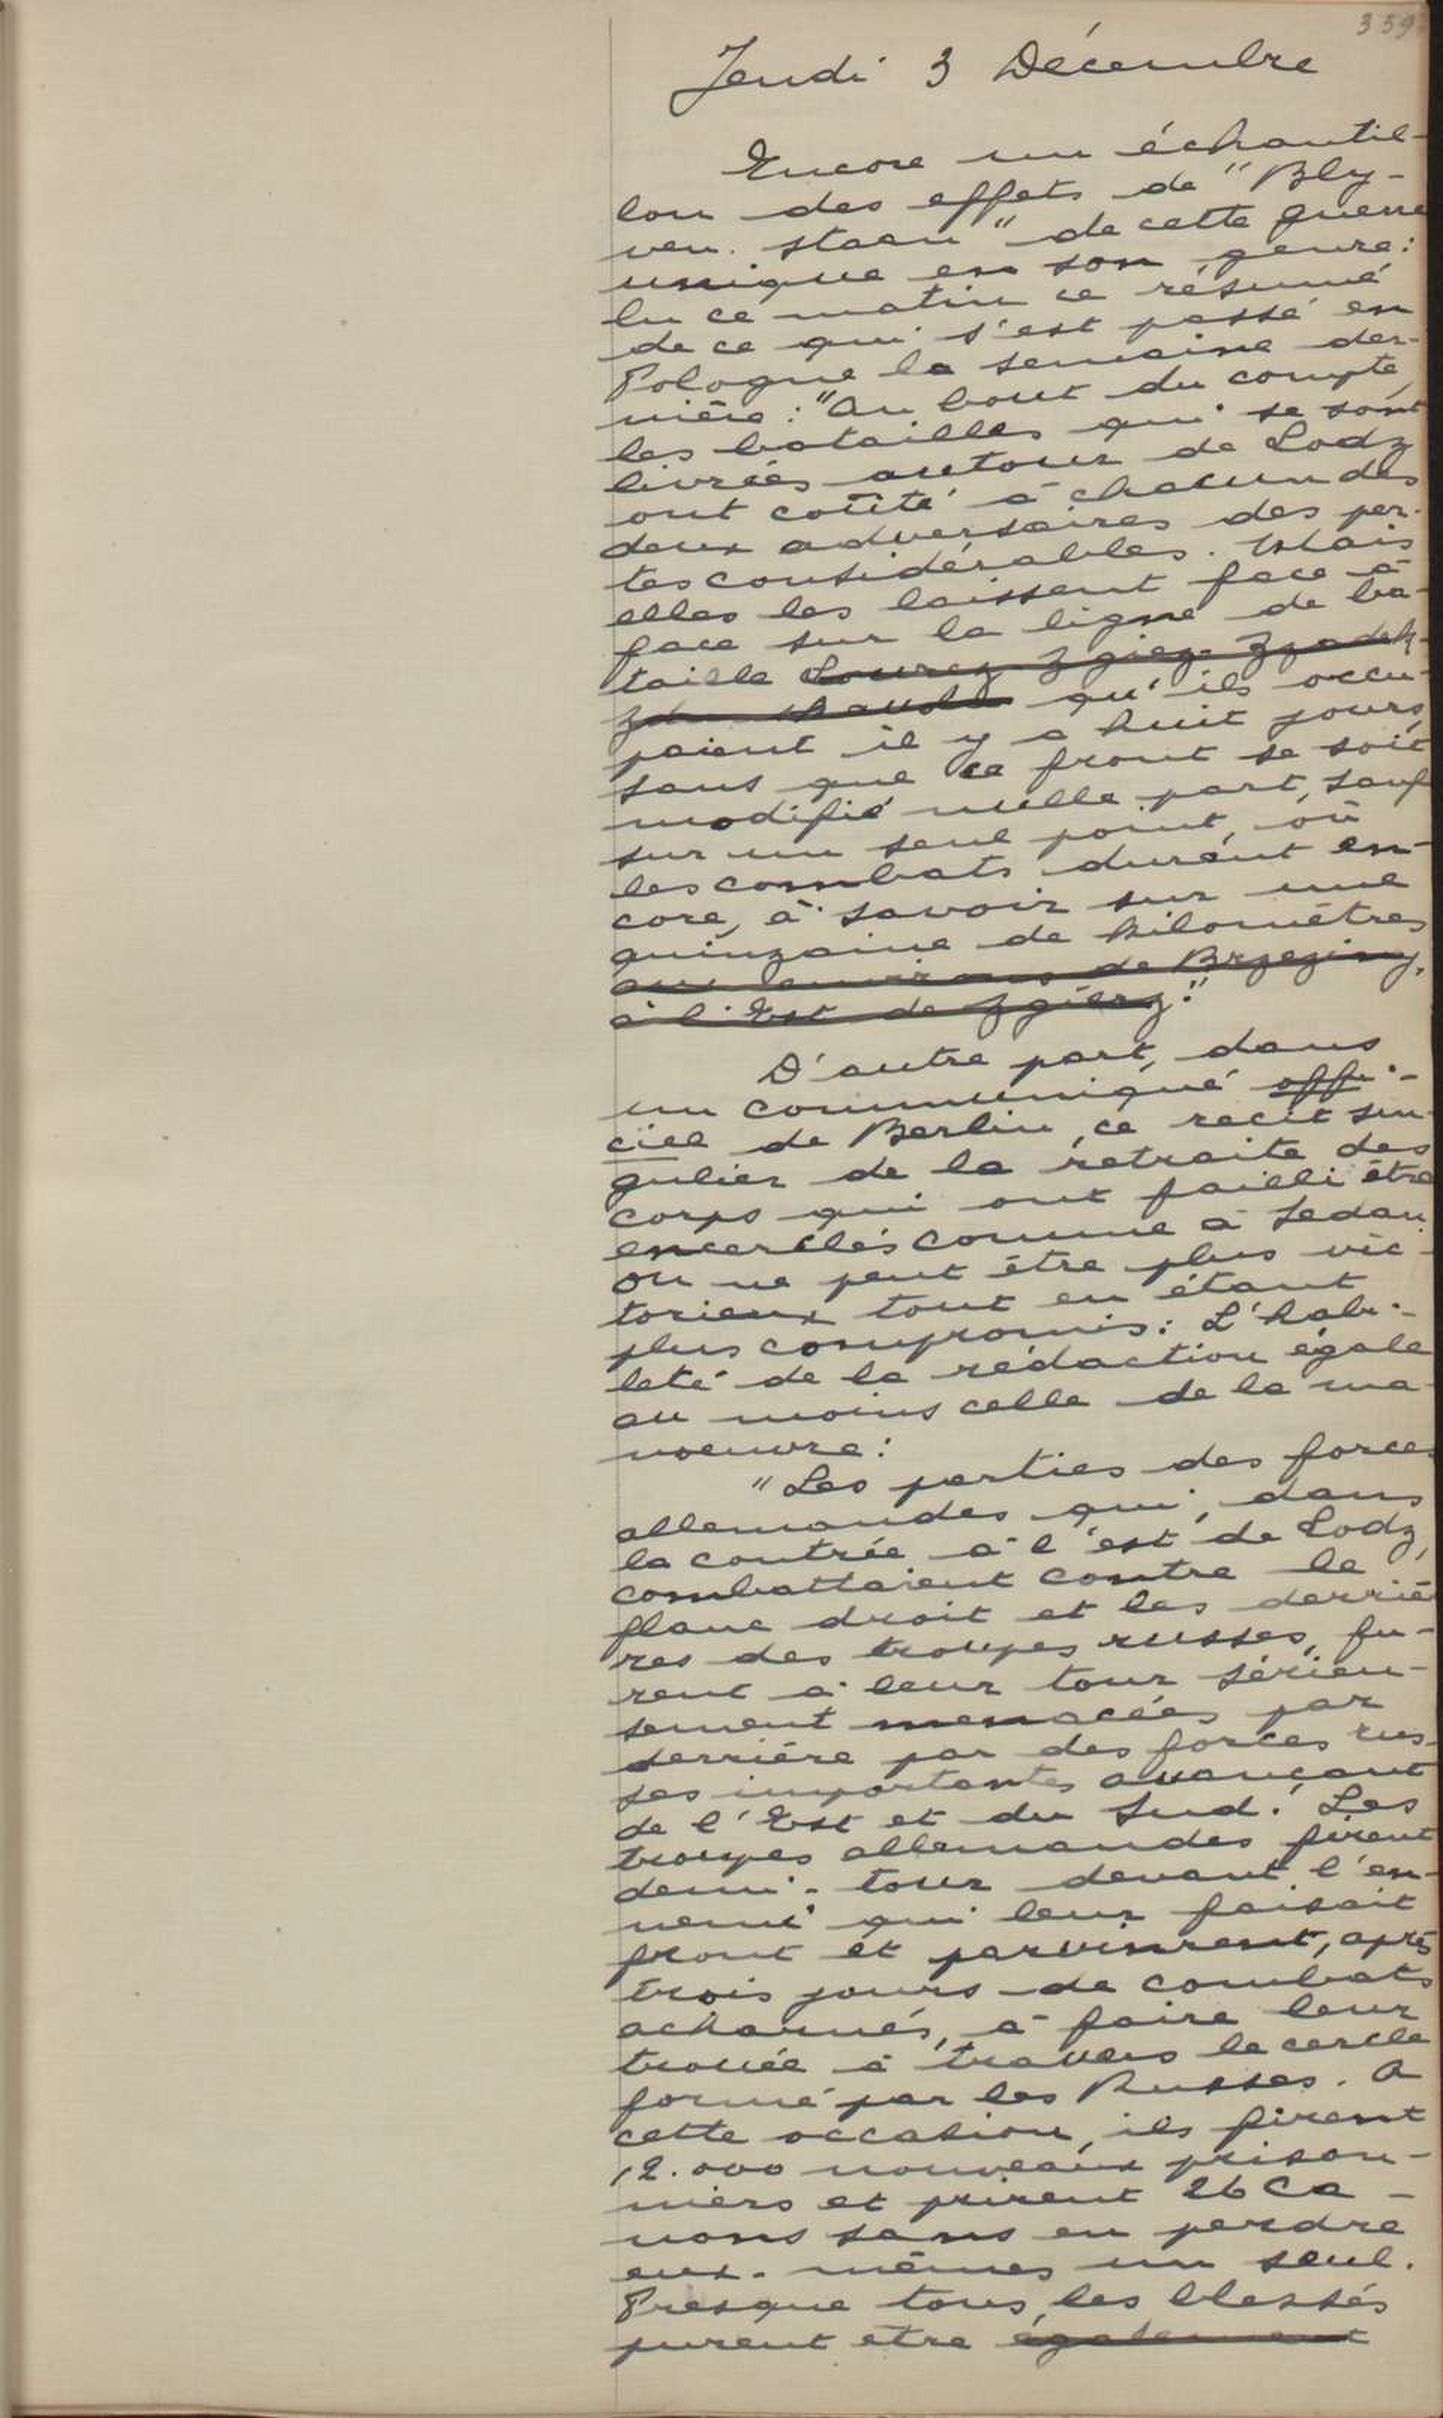 359
Jeudi 3 Décembre
Encore un échantil-
lon des effets de "Bly-
ven staen" de cette guerre
unique en son genre:
lu ce matin ce résumé
de ce qui s'est passé en
Pologne la semaine der-
nière: "Au bout du compte,
les batailles qui se sont
livrées autour de Lodz
ont coûté à chacun des
deux adversaires des per-
tes considérables. Mais
elles les laissent face à
face sur la ligne de ba-
taille qu'ils occu-
paient il y a huit jours
sans que ce front se soit
modifié nulle part, sauf
sur un seul point, où
les combats durent en-
core, à savoir sur une
quinzaine de kilomètres
aux environs de Brzeziny,
à l'Est de Zgierz."
D'autre part, dans
un communiqué offi-
ciel de Berlin, ce récit sin-
gulier de la retraite des
corps qui ont failli être
encerclés comme à Sedan.
On ne peut être plus vic-
torieux tout en étant
plus compromis: L'habi-
leté de la rédaction égale
au moins celle de la ma-
noeuvre:
"Les parties des forces
allemandes qui, dans
la contrée à l'est de Lodz,
combattaient contre le
flanc droit et les derriè-
res des troupes russes, fu-
rent à leur tour sérieu-
sement menacées par
derrière par des forces rus-
ses importantes avançant
de l'Est et du Sud. Les
troupes allemandes firent
demi-tour devant l'en-
nemi qui leur faisait
front et parvinrent, après
trois jours de combats
acharnés, à faire leur
trouée à travers le cercle
formé par les Russes. A
cette occasion, ils firent
12.000 nouveaux prison-
niers et prirent 26 ca-
nons sans en perdre
eux-mêmes un seul.
Presque tous les blessés
purent être également